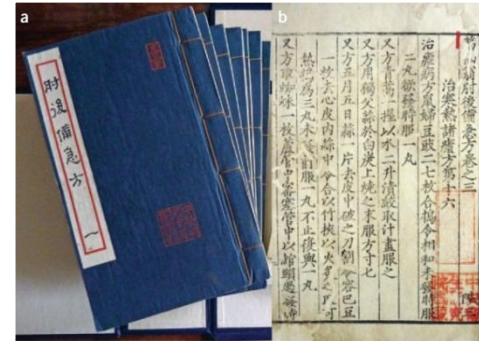 a
肘後備急方 一
b
葛仙翁肘後備急方卷之三
治寒熱諸瘧方第十六
治瘧病方鼠婦豆豉二七枚合搗令相和未發時服
二丸欲發時服一丸
又方青蒿一握以水二升漬絞取汁盡服之
又方用獨父蒜於白炭上燒之末服方寸七
又方五月五日蒜一片去皮中破之刀割令容巴豆
一枚去心皮內蒜中令合以竹挾以火炙之取可
熱搗為三丸未發前服一丸不止復與一丸
又方取蜘蛛一枚蘆管中密塞管中以綰頸過發時